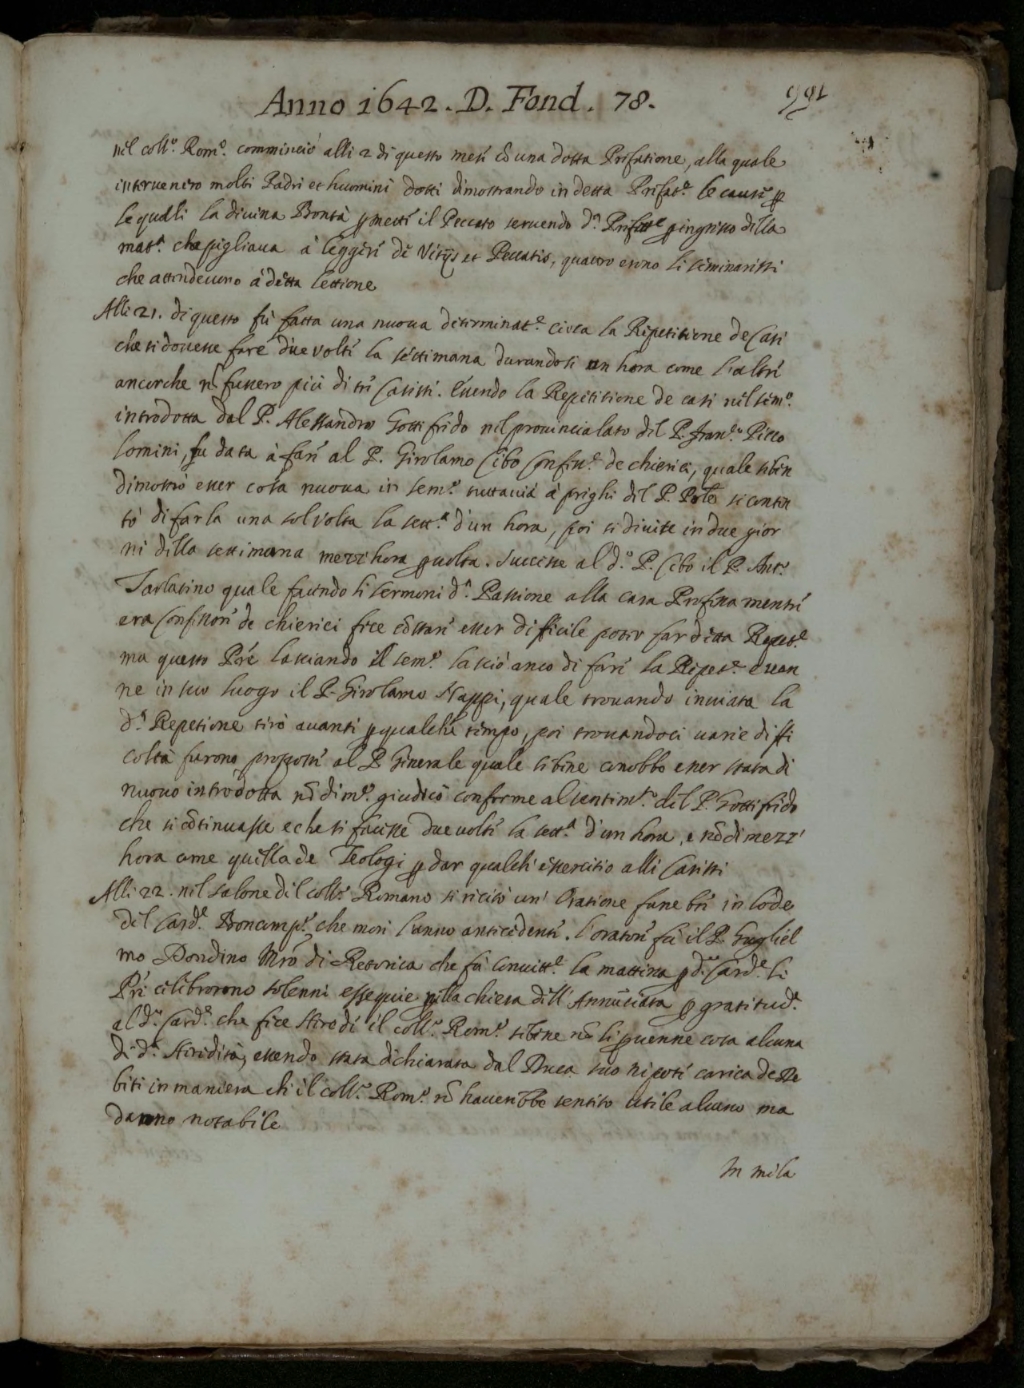 Anno 1642. D. Fond. 78.
nel coll.º Rom.º comminciò alli 2 di questo mese cõ una dotta Prefatione, alla quale
intervenero molti Padri et huomini dotti dimostrando in detta Prefat.e le cause p
le quali la divina Bontà pmette il Peccato servendo d.a Prefat.e p ingresso della
mat.a che pigliava à leggere de Vitijs et Peccatis, quattro erono li seminaristi
che attendevono à detta lettione
Alli 21. di questo fù fatta una nuova determinat.e circa la Ripetitione de Casi
che si dovesse fare due volte la settimana durandosi un hora come l'altre
ancorche nõ fussero più di tre Casisti. Essendo la Repetitione de casi nel sem.º
introdotta dal P. Alessandro Gottifrido nel provincialato del P. Fran.º Picco
lomini, fu data à fare al P. Girolamo Cibo Confess.e de chierici, quale sebene
dimostrò esser cosa nuova in sem.º tuttavia à prieghi del P. si conten
tò di farla una sol volta la sett.a d'un hora, poi si divise in due gior
ni della settimana mezz hora p volta. Successe al d.º P. Cibo il P. Ant.º
Tarlatino quale facendo li sermoni d.a Passione alla casa Professa mentre
era Confessore de chierici fece cõstare esser difficile poter far detta Repet.e
ma questo Pre lasciando il sem.º lasciò anco di fare la Ripet.e e ven
ne in suo luogo il P. Girolamo Nappi, quale trovando inviata la
d.a Repetione tirò avanti p qualche tempo, poi trovandoci varie diffi
coltà furono proposte al P. Generale quale sebene conobbe esser stata di
nuovo introdotta nõdim.º giudicò conforme al sentim.º del P. Gottifrido
che si cõtinuasse e che si facesse due volte la sett.a d'un hora, e nõ di mezz'
hora come quella de Teologi p dar qualche essercitio alli Casisti
Alli 22. nel salone del coll.º Romano si recitò un' Oratione funebre in lode
del Card.e Boncomp.º che morì l'anno antecedente. l'oratore fù il P. Gugliel
mo Dondino Mro di Retorica che fù Convitt.e la mattina p d.º Card.e li
Pri celebrorono solenni essequie nella chiesa dell'Annũtiata p gratitud.e
al d.º Card.e che fece Herede il coll.º Rom.º sebene nõ li pvenne cosa alcuna
di d.a Heredità, essendo stata dichiarata dal Duca suo nipote carica de De
biti in maniera che il coll.º Rom.º nõ haverebbe sentito utile alcuno ma
danno notabile
In mila